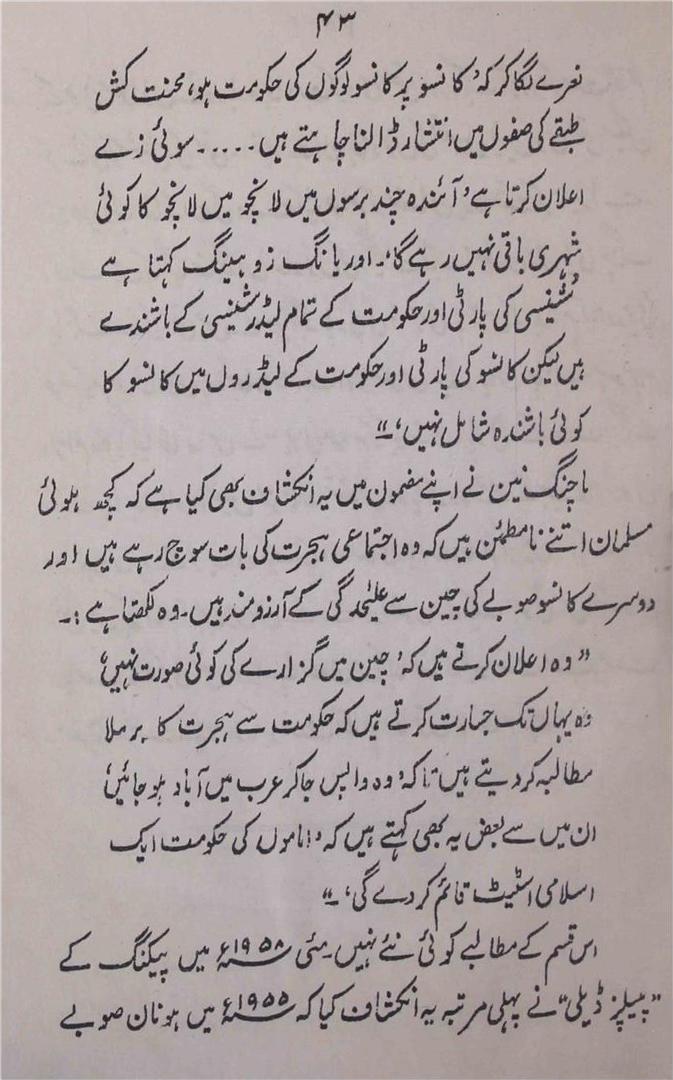 ۴۳
نعرے لگا کر کہ ’کانسو پر کانسو لوگوں کی حکومت ہو، محنت کش
طبقے کی صفوں میں انتشار ڈالنا چاہتے ہیں ..... سوئی زے
اعلان کرتا ہے ’آئندہ چند برسوں میں لانچو میں لانچو کا کوئی
شہری باقی نہیں رہے گا‘۔ اور یانگ زو ہینگ کہتا ہے
’شینسی کی پارٹی اور حکومت کے تمام لیڈر شینسی کے باشندے
ہیں لیکن کانسو کی پارٹی اور حکومت کے لیڈروں میں کانسو کا
کوئی باشندہ شامل نہیں‘۔"
ماچنگ نین نے اپنے مضمون میں یہ انکشاف بھی کیا ہے کہ کچھ ہوئی
مسلمان اتنے نامطمئن ہیں کہ وہ اجتماعی ہجرت کی بات سوچ رہے ہیں اور
دوسرے کانسو صوبے کی چین سے علیٰحدگی کے آرزومند ہیں۔ وہ لکھتا ہے :۔
"وہ اعلان کرتے ہیں کہ ’چین میں گزارے کی کوئی صورت نہیں‘
وہ یہاں تک جسارت کرتے ہیں کہ حکومت سے ہجرت کا برملا
مطالبہ کر دیتے ہیں تاکہ ’وہ واپس جا کر عرب میں آباد ہو جائیں‘
ان میں سے بعض یہ بھی کہتے ہیں کہ ’اماموں کی حکومت ایک
اسلامی اسٹیٹ قائم کر دے گی‘۔"
اس قسم کے مطالبے کوئی نئے نہیں۔ مئی ۱۹۵۸ء میں پیکنگ کے
"پیپلز ڈیلی" نے پہلی مرتبہ یہ انکشاف کیا کہ ۱۹۵۵ء میں ہونان صوبے